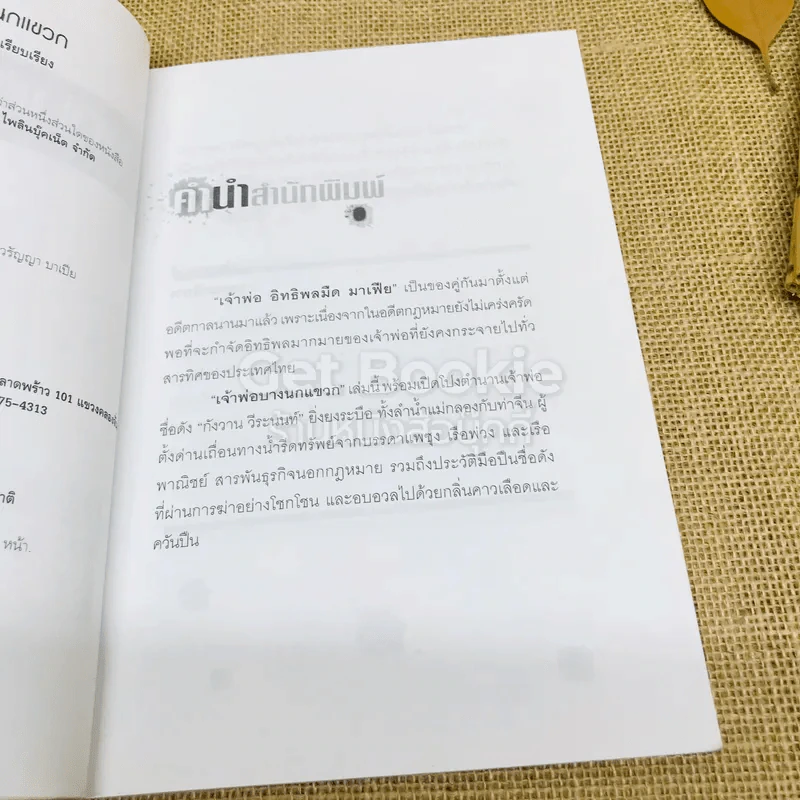 นกแขวก
เรียบเรียง
าส่วนหนึ่งส่วนใดของหนังสือ
ไพลินบุ๊คเน็ต จำกัด
วรัญญา บาเปีย
ลาดพร้าว 101 แขวงคลองจั่น
75-4313
าติ
หน้า.
คำนำสำนักพิมพ์
"เจ้าพ่อ อิทธิพลมืด มาเฟีย" เป็นของคู่กันมาตั้งแต่
อดีตกาลนานมาแล้ว เพราะเนื่องจากในอดีตกฎหมายยังไม่เคร่งครัด
พอที่จะกำจัดอิทธิพลมากมายของเจ้าพ่อที่ยังคงกระจายไปทั่ว
สารทิศของประเทศไทย
"เจ้าพ่อบางนกแขวก" เล่มนี้ พร้อมเปิดโปงตำนานเจ้าพ่อ
ชื่อดัง "กังวาน วีระนนท์" ยิ่งยงระบือ ทั้งลำน้ำแม่กลองกับท่าจีน ผู้
ตั้งด่านเถื่อนทางน้ำรีดทรัพย์จากบรรดาแพซุง เรือพ่วง และเรือ
พาณิชย์ สารพันธุรกิจนอกกฎหมาย รวมถึงประวัติมือปืนชื่อดัง
ที่ผ่านการฆ่าอย่างโชกโชน และอบอวลไปด้วยกลิ่นคาวเลือดและ
ควันปืน
Get Bookie
ร้านหนังสือมือสอง